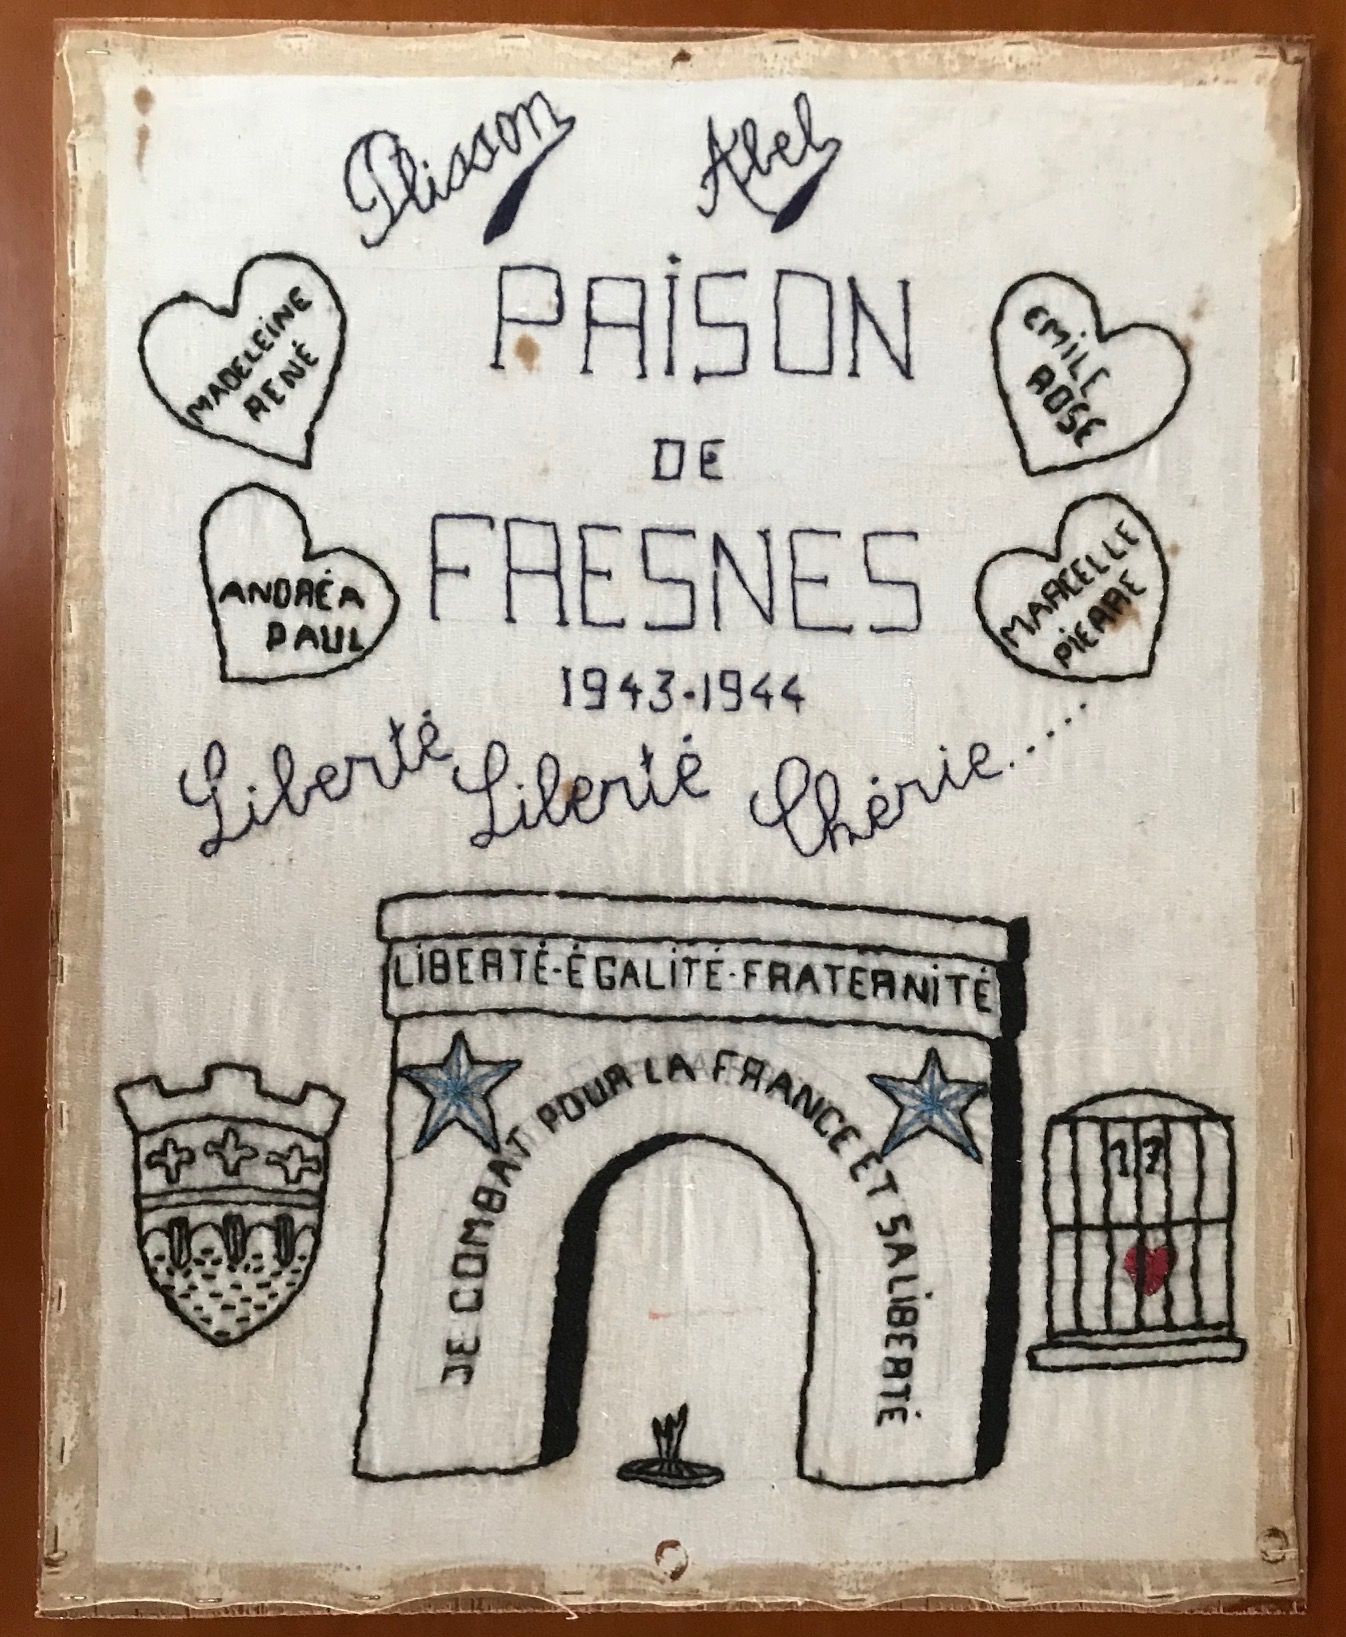 Plisson Abel
PRISON
DE
FRESNES
1943-1944
MADELEINE
RENÉ
EMILE
ROSE
ANDRÉA
PAUL
MARCELLE
PIERRE
Liberté Liberté Chérie.....
LIBERTÉ-ÉGALITÉ-FRATERNITÉ
JE COMBAT POUR LA FRANCE ET SA LIBERTÉ
17